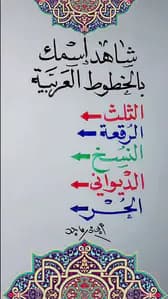 شاهد اسمك
بالخطوط العربية
الثلث
الرقعة
النسخ
الديواني
الحر